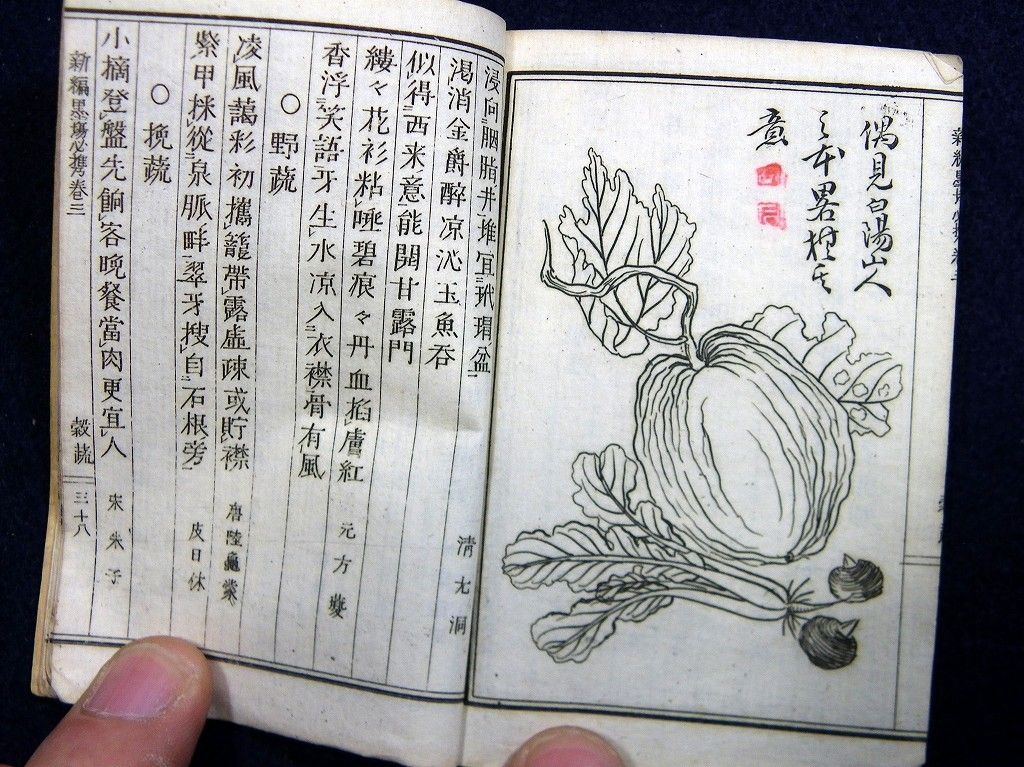 偶見白陽山人
之本畧模其
意
浸向胭脂井堆宜玳瑁盆
渇消金爵醉凉沁玉魚呑 清尤洞
似得西来意能開甘露門
縷々花衫粘唾碧痕々丹血掐膚紅
香浮笑語牙生水凉入衣襟骨有風 元方夔
○野蔬
凌風藹彩初攜籠帶露虚疎或貯襟 唐陸龜蒙
紫甲採從泉脈畔翠牙搜自石根旁 皮日休
○挽蔬
小摘登盤先餉客晩餐當肉更宜人 宋朱子
新編墨場必携巻三
穀蔬
三十八